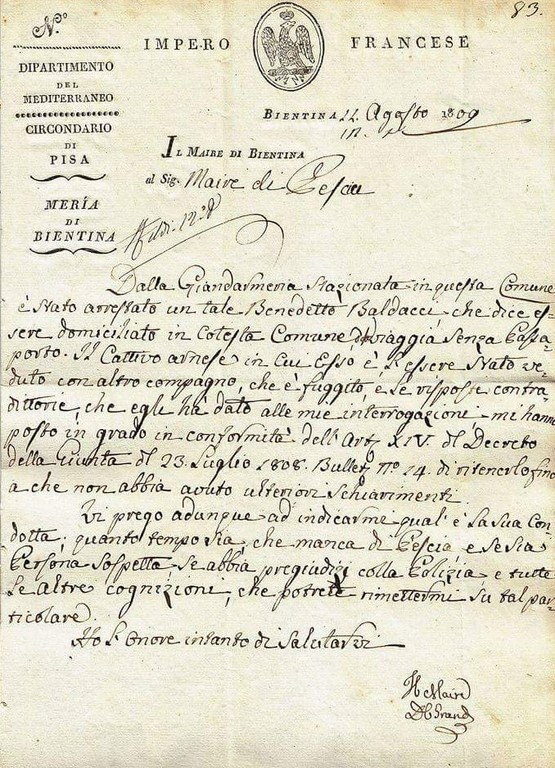 N.º
83.
IMPERO FRANCESE
DIPARTIMENTO
DEL
MEDITERRANEO
CIRCONDARIO
DI
PISA
MERÍA
DI
BIENTINA
BIENTINA 22 Agosto 1809
IL MAIRE DI BIENTINA
al Sig. Maire di Pescia
Dalla Giandarmeria Stazionata in questa Comune
è Stato arrestato un tale Benedetto Baldacci, che dice es-
sere domiciliato in Cotesta Comune viaggia Senza Passa-
porto. Il Cattivo arnese in cui Esso è l'essere Stato ve-
duto con altro compagno, che è fuggito e le risposte contra-
dittorie, che egli ha dato alle mie interrogazioni mi hanno
posto in grado in conformità dell'Art.º XIV. del Decreto
della Giunta del 23. Luglio 1808. Bullet. nº 14. di ritenerlo fino
a che non abbia avuto ulteriori schiarimenti.
Vi prego adunque ad indicarme qual'è la sua Con-
dotta, quanto tempo sia, che manca di Pescia e se sia
Persona Sospetta Se abbia pregiudizj colla Polizia e tutte
le altre cognizioni, che potrete rimettermi su tal par-
ticolare.
Ho l'Onore intanto di Salutarvi
Il Maire